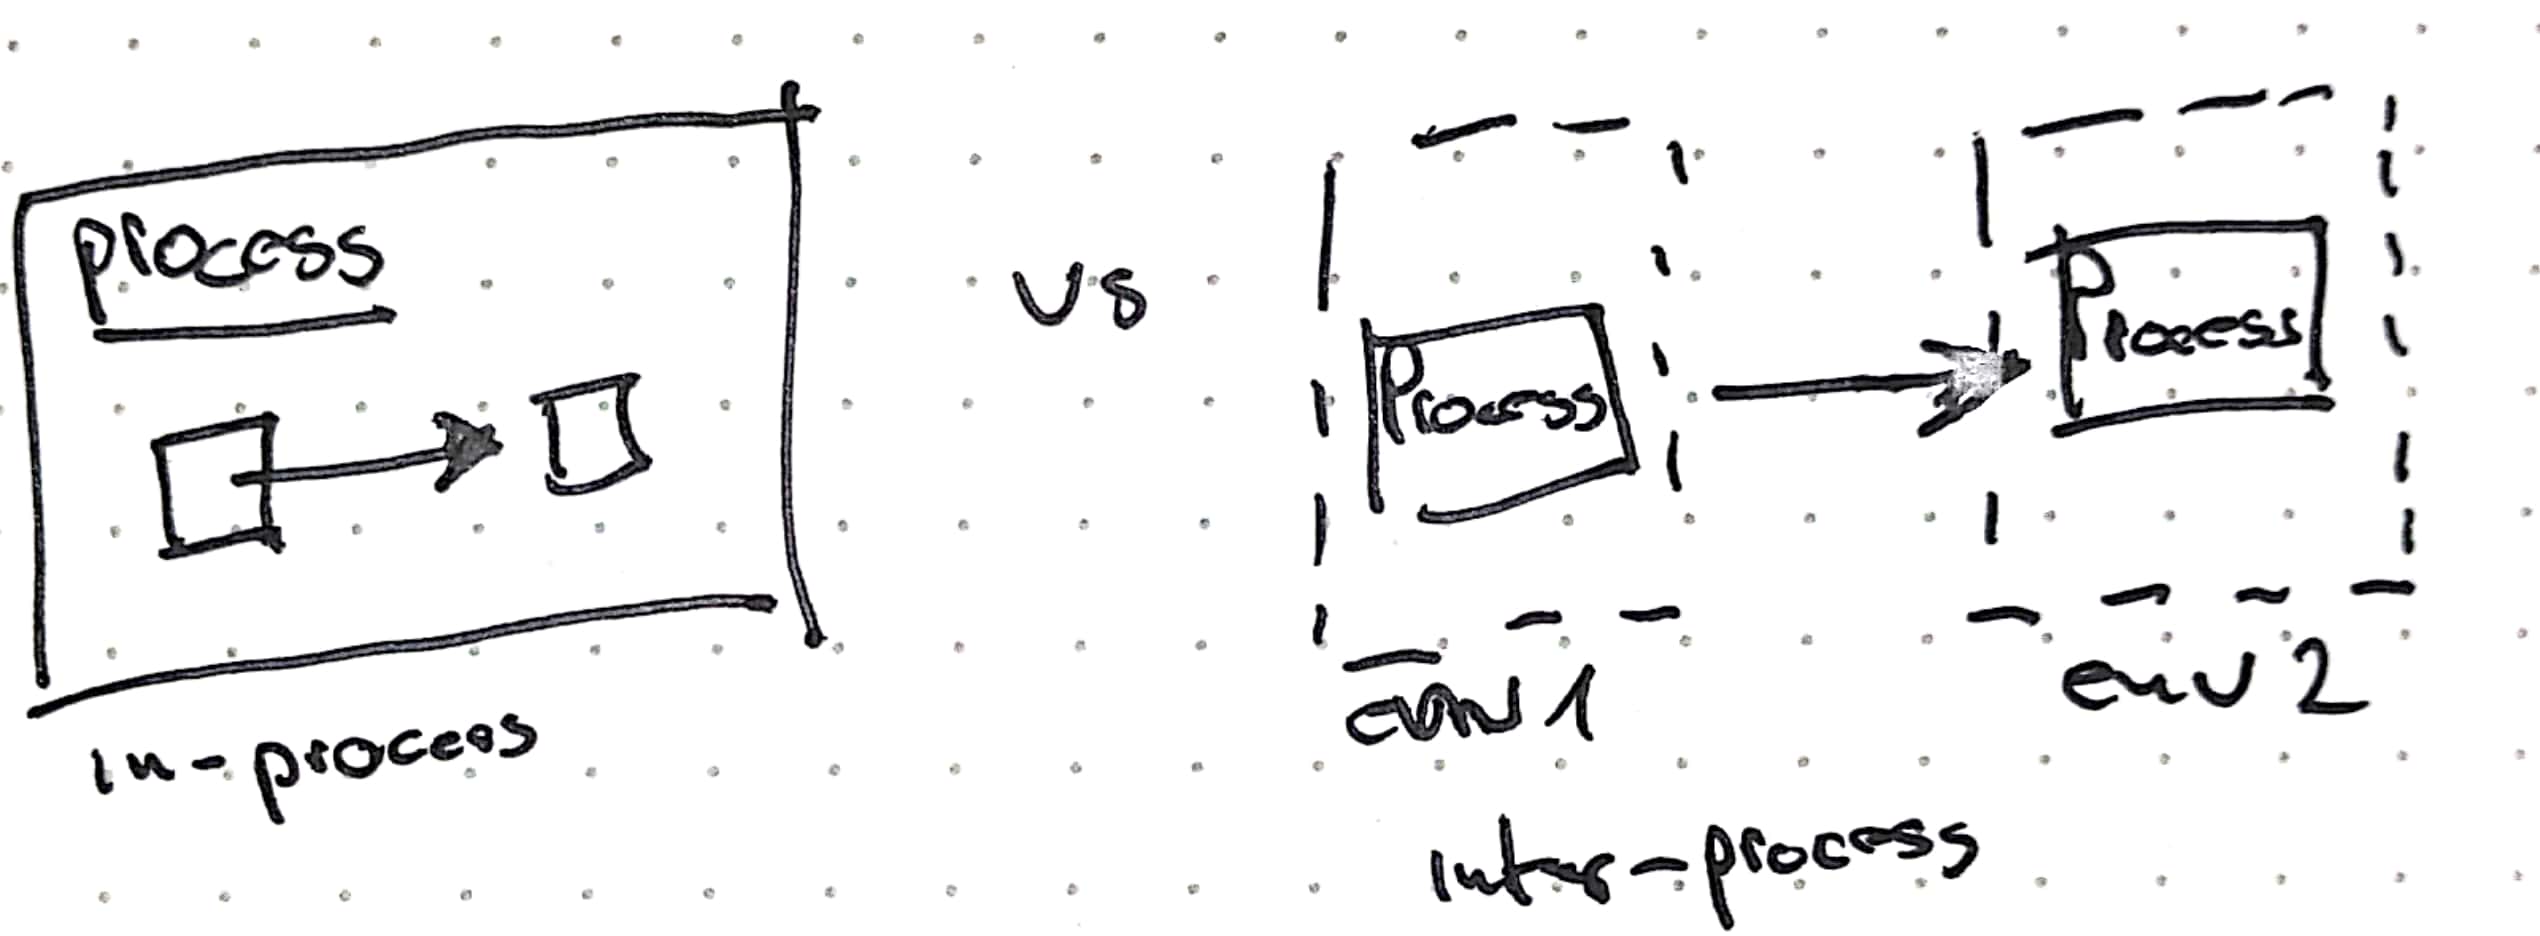 process
in-process
vs
Process
env 1
Process
env 2
inter-process